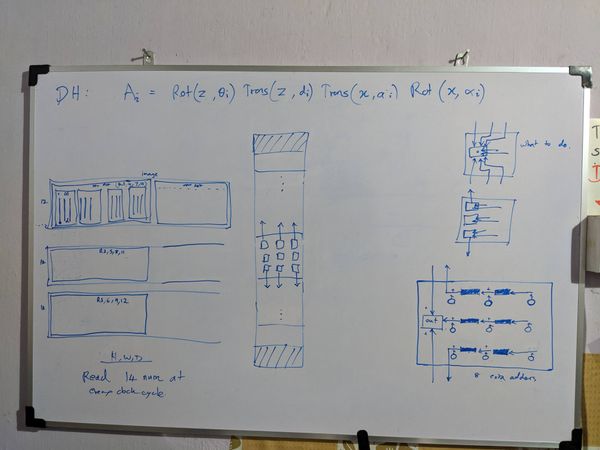 DH: Ai = Rot(z, θi) Trans(z, di) Trans(x, ai) Rot(x, αi)
what to do.
image
12
R2,5,8,11
R3,6,9,12
H,W,D
Read 14 num at
every clock cycle
out
8 extra adders